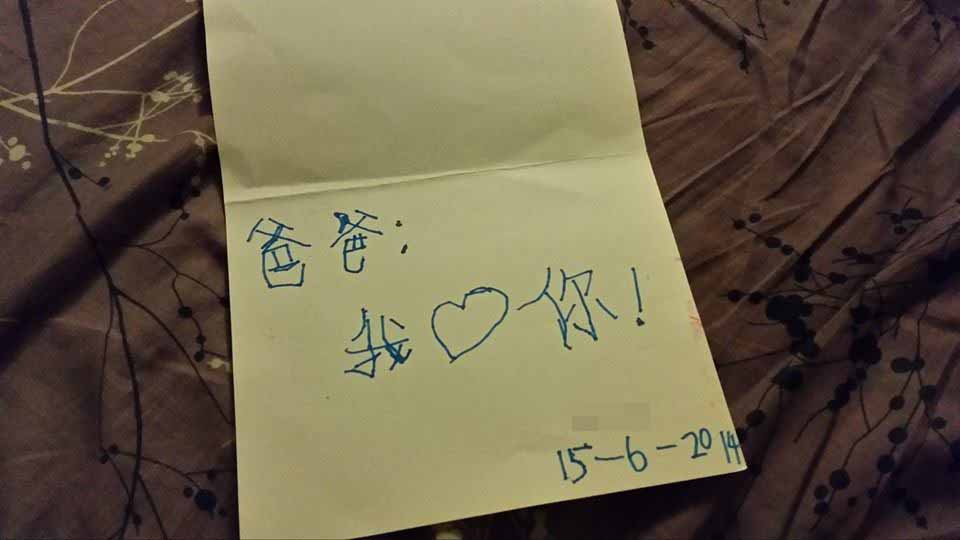 爸爸:
我♡你!
15-6-2014